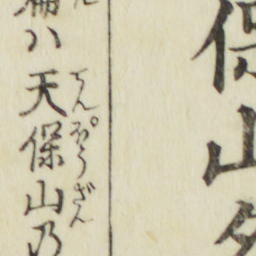 保山夕
ハ天保山乃
てんぽうざん